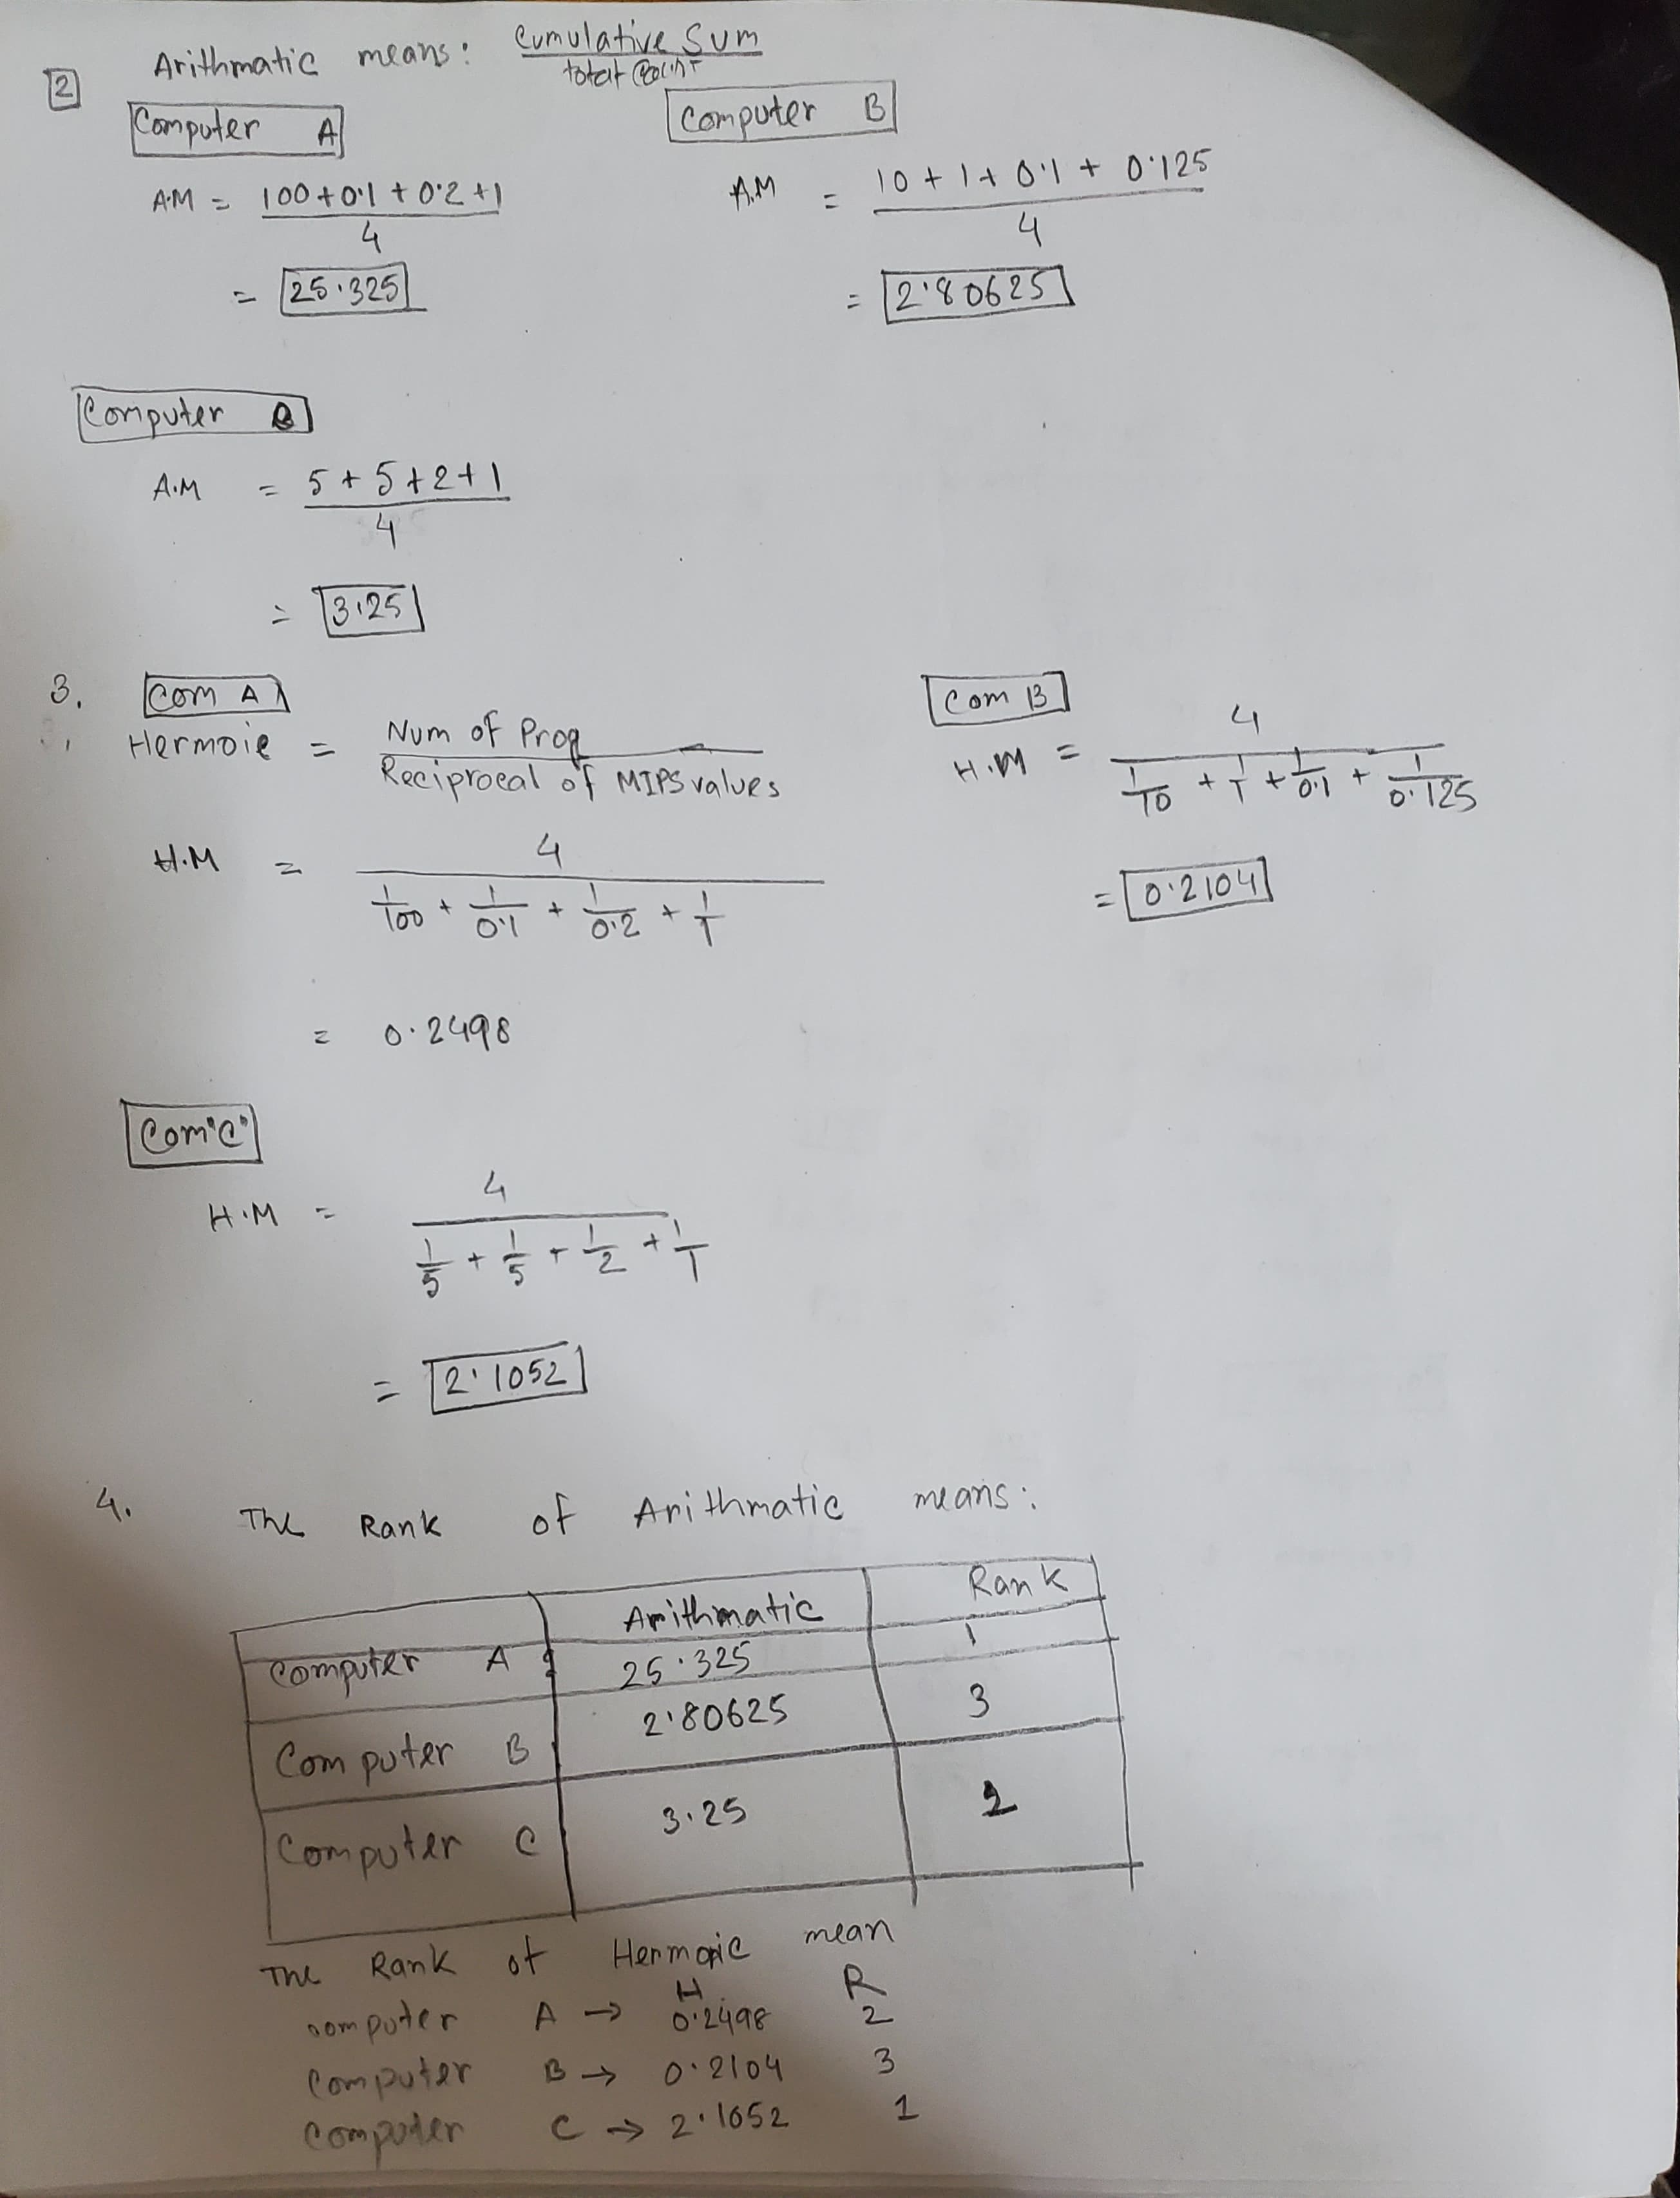 2
Arithmatic means: Cumulative Sum
total Count
Computer A
Computer B
A.M = 100 + 0.1 + 0.2 + 1
4
= 25.325
A.M = 10 + 1 + 0.1 + 0.125
4
= 2.80625
Computer C
A.M = 5 + 5 + 2 + 1
4
= 3.25
3. Com A
Hermoic = Num of Prog
Reciprocal of MIPS values
H.M = 4
1/100 + 1/0.1 + 1/0.2 + 1/1
= 0.2498
Com B
H.M = 4
1/10 + 1/1 + 1/0.1 + 1/0.125
= 0.2104
Com "C"
H.M = 4
1/5 + 1/5 + 1/2 + 1/1
= 2.1052
4. The Rank of Arithmatic means:
Arithmatic Rank
Computer A 25.325 1
Computer B 2.80625 3
Computer C 3.25 2
The Rank of Hermonic mean
H R
computer A → 0.2498 2
Computer B → 0.2104 3
Computer C → 2.1052 1